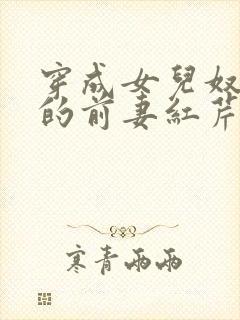 穿成女兒奴
的前妻紅芹
寒青雨雨